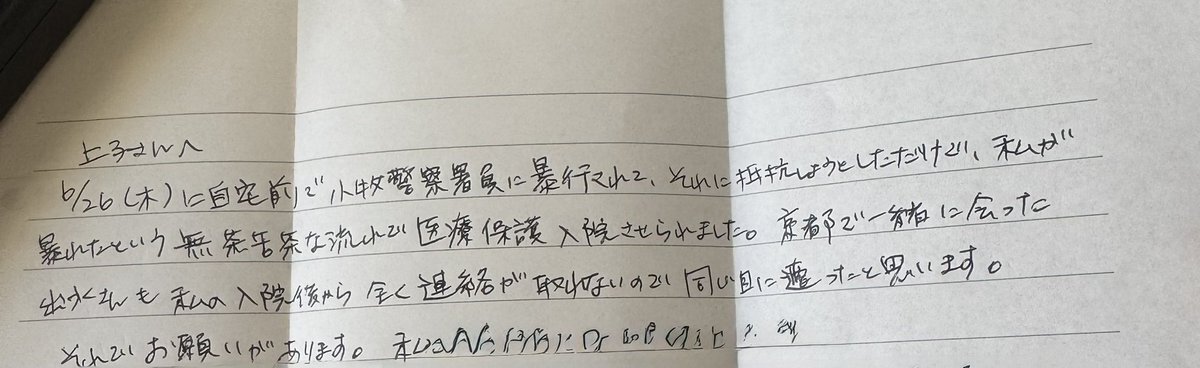 上子さんへ
6/26(木)に自宅前で小牧警察署員に暴行されて、それに抵抗しようとしただけで、私が
暴れたという無茶苦茶な流れで医療保護入院させられました。京都で一緒に会った
さんも私の入院後から全く連絡が取れないので同じ目に遭ったと思います。
それでお願いがあります。私